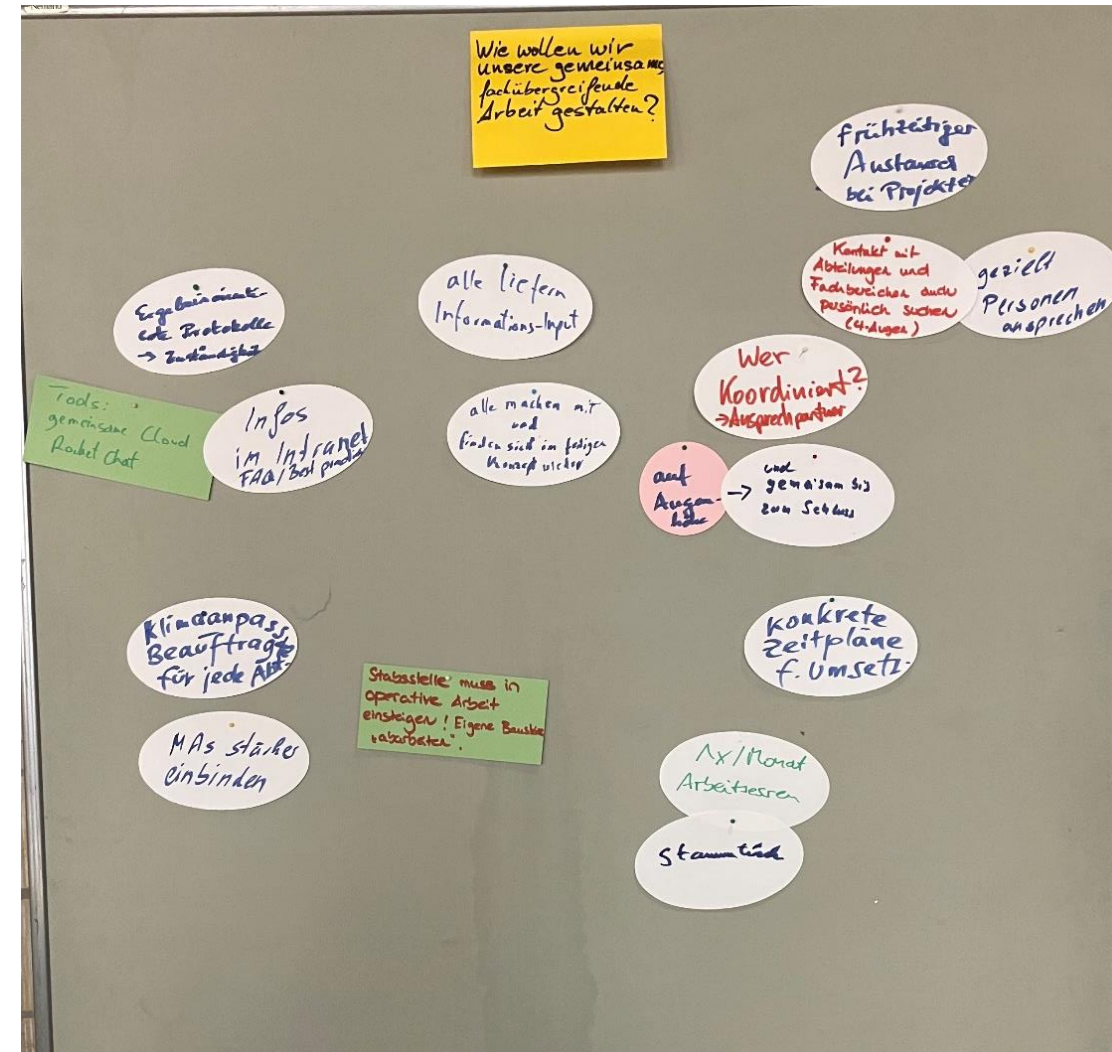 Wie wollen wir
unsere gemeinsame
fachübergreifende
Arbeit gestalten?
frühzeitiger
Austausch
bei Projekten
Kontakt mit
Abteilungen und
Fachbereichen auch
persönlich suchen
(4-Augen)
gezielt
Personen
ansprechen
Ergebnisorientierte Protokolle
→ Zuständigkeit
alle liefern
Informations-Input
Wer
Koordiniert?
→ Ansprechpartner
Tools:
gemeinsame Cloud
Rocket Chat
Infos
im Intranet
FAQ/Best practice
alle machen mit
und
finden sich im fertigen
Konzept wieder
auf
Augen-
höhe
→ und
gemeinsam bis
zum Schluss
Klimaanpass.
Beauftragte
für jede Abt.
konkrete
Zeitpläne
f. Umsetz.
Stabsstelle muss in
operative Arbeit
einsteigen! Eigene
"abarbeiten".
MAs stärker
einbinden
1x/Monat
Arbeitsessen
Stammtisch